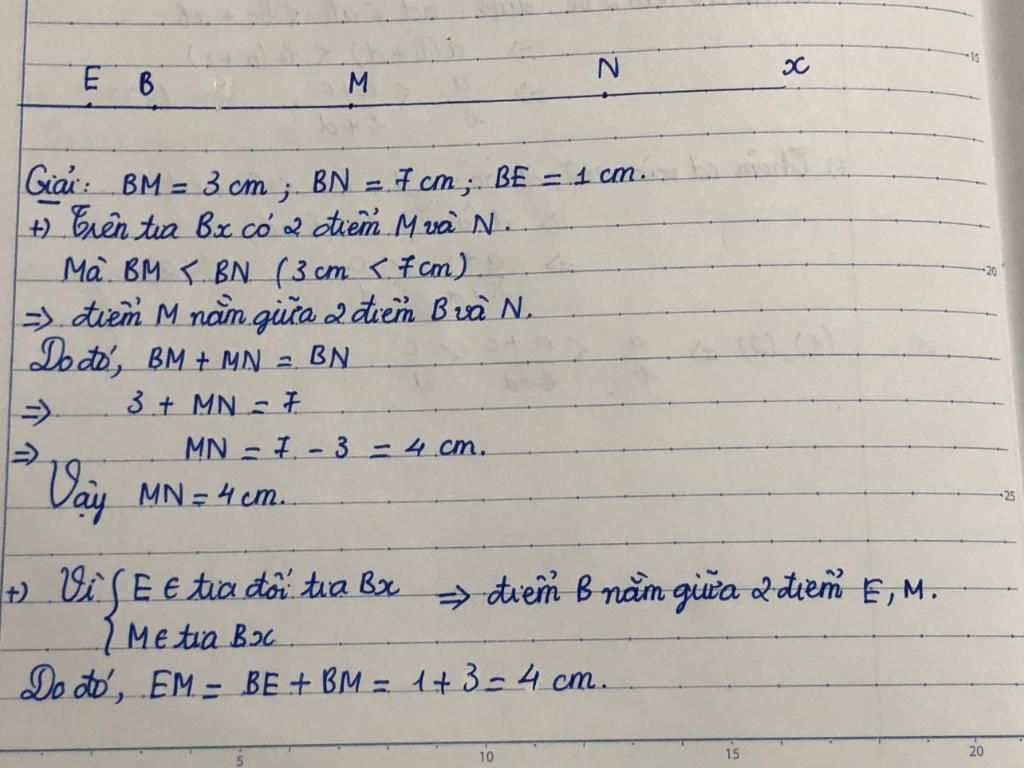 E B M N x
Giải: BM = 3 cm ; BN = 7 cm ; BE = 1 cm.
+) Trên tia Bx có 2 điểm M và N.
Mà BM < BN (3 cm < 7 cm)
=> điểm M nằm giữa 2 điểm B và N.
Do đó, BM + MN = BN
=> 3 + MN = 7
=> MN = 7 - 3 = 4 cm.
Vậy MN = 4 cm.
+) Vì { E ∈ tia đối tia Bx => điểm B nằm giữa 2 điểm E, M.
M ∈ tia Bx
Do đó, EM = BE + BM = 1 + 3 = 4 cm.
15
20
25
5 10 15 20